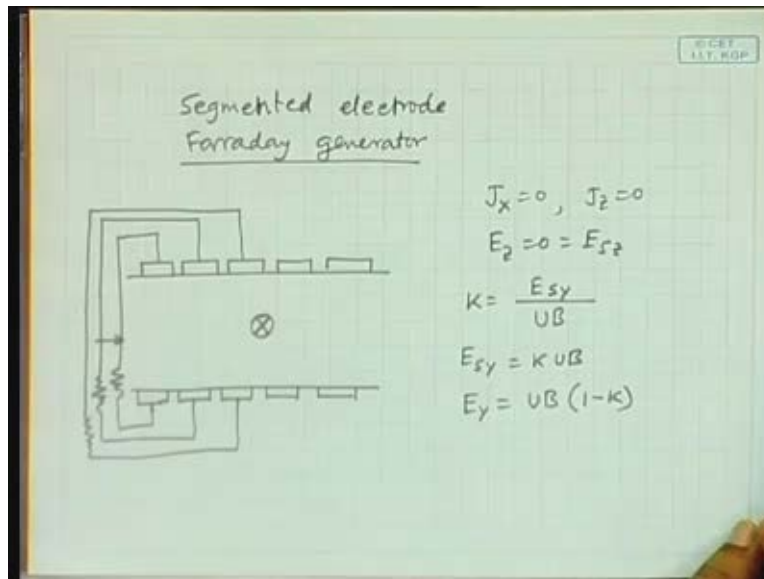 © CET
I.I.T. KGP
Segmented electrode
Farraday generator
J_x = 0 , J_z = 0
E_z = 0 = E_sz
K = E_sy / UB
E_sy = K UB
E_y = UB (1-K)